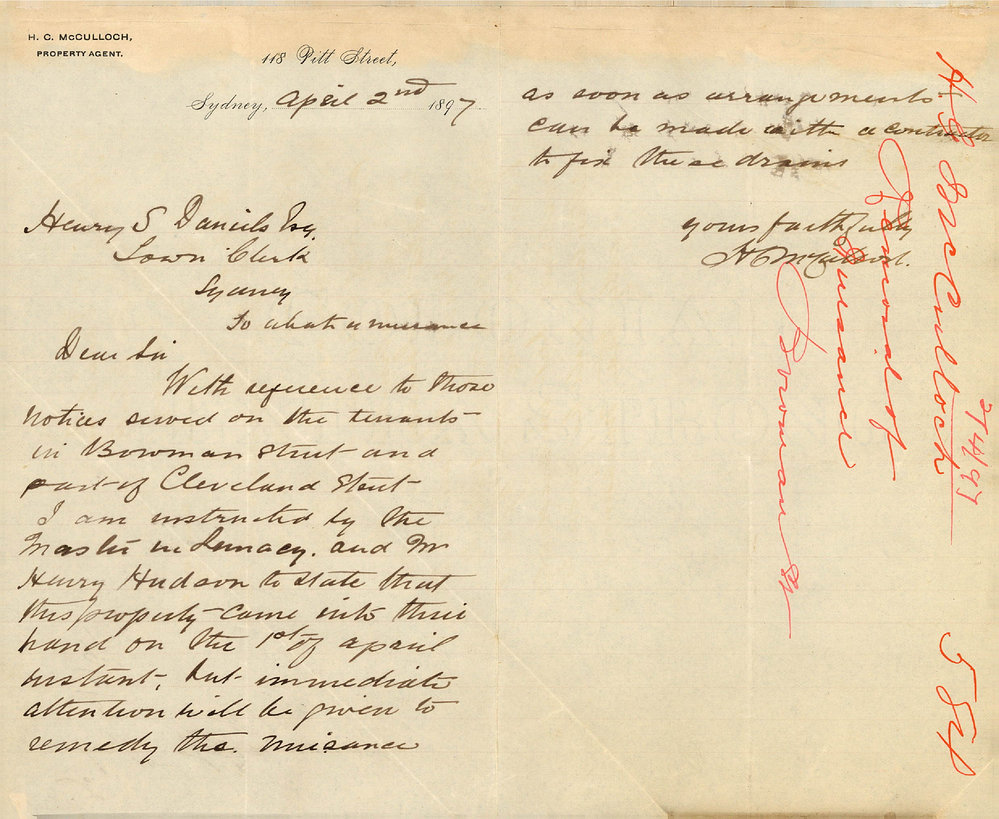 H. C. McCULLOCH,
PROPERTY AGENT.
118 Pitt Street,
Sydney, April 2nd 1897
Henry S Daniels Esq.
Town Clerk
Sydney
To abate a nuisance
Dear Sir
With reference to those
notices served on the tenants
in Bowman Street and
part of Cleveland Street
I am instructed by the
Master in Lunacy. and Mr
Henry Hudson to state that
this property came into their
hand on the 1st of april
instant, but immediate
attention will be given to
remedy the nuisance
as soon as arrangements
can be made with a contractor
to fix these drains
yours faithfully
H C McCulloch.
H C McCulloch
2/4/97
Removal of
nuisance
Bowman St